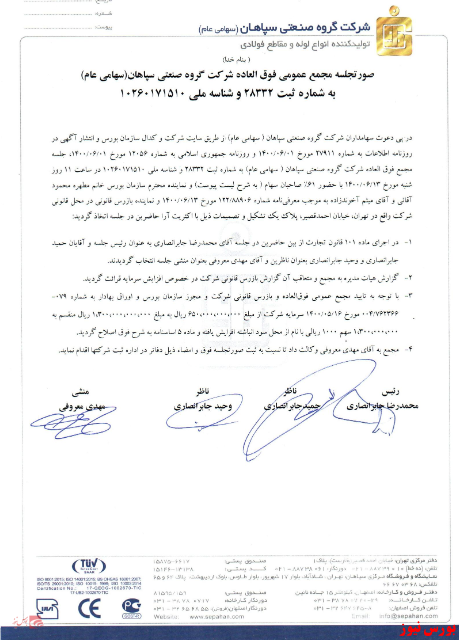 شرکت گروه صنعتی سپاهان (سهامی عام)
تولیدکننده انواع لوله و مقاطع فولادی
( بنام خدا )
صورتجلسه مجمع عمومی فوق العاده شرکت گروه صنعتی سپاهان(سهامی عام)
به شماره ثبت ۲۸۳۳۲ و شناسه ملی ۱۰۲۶۰۱۷۱۵۱۰
در پی دعوت سهامداران شرکت گروه صنعتی سپاهان ( سهامی عام) از طریق سایت شرکت و کدال سازمان بورس و انتشار آگهی در
روزنامه اطلاعات به شماره ۲۷۹۱۱ مورخ ۱۴۰۰/۰۶/۰۱ و روزنامه جمهوری اسلامی به شماره ۱۲۰۵۶ مورخ ۱۴۰۰/۰۶/۰۱، جلسه
مجمع فوق العاده شرکت گروه صنعتی سپاهان ( سهامی عام) به شماره ثبت ۲۸۳۳۲ و شناسه ملی ۱۰۲۶۰۱۷۱۵۱۰ در ساعت ۱۱ روز
شنبه مورخ ۱۴۰۰/۰۶/۱۳ با حضور ۶۱٪ صاحبان سهام ( به شرح لیست پیوست) و نماینده محترم سازمان بورس خانم مطهره محمود
آقائی و آقای میثم آخوندزاده به موجب معرفی‌نامه شماره ۱۲۲/۸۸۹۰۶ مورخ ۱۴۰۰/۰۶/۱۳ و نماینده بازرس قانونی در محل قانونی
شرکت واقع در تهران، خیابان احمدقصیر، پلاک یک تشکیل و تصمیمات ذیل با اکثریت آرا حاضرین در جلسه اتخاذ گردید:
۱- در اجرای ماده ۱۰۱ قانون تجارت از بین حاضرین در جلسه آقای محمدرضا جابرانصاری به عنوان رئیس جلسه و آقایان حمید
جابرانصاری و وحید جابرانصاری بعنوان ناظرین و آقای مهدی معروفی بعنوان منشی جلسه انتخاب گردیدند.
۲- گزارش هیات مدیره به مجمع و متعاقب آن گزارش بازرس قانونی شرکت در خصوص افزایش سرمایه قرائت گردید.
۳- با توجه به تایید مجمع عمومی فوق‌العاده و بازرس قانونی شرکت و مجوز سازمان بورس و اوراق بهادار به شماره ۰۷۹-
۰۰۴/۷۶۲۳۶۶ مورخ ۱۴۰۰/۰۵/۱۶ سرمایه شرکت از مبلغ ۶۵۰,۰۰۰,۰۰۰,۰۰۰ ریال به مبلغ ۱,۳۰۰,۰۰۰,۰۰۰,۰۰۰ ریال منقسم به
۱,۳۰۰,۰۰۰,۰۰۰ سهم ۱۰۰۰ ریالی با نام از محل سود انباشته افزایش یافته و ماده ۵ اساسنامه به شرح فوق اصلاح گردید.
۴- مجمع به آقای مهدی معروفی وکالت داد تا نسبت به ثبت صورتجلسه فوق و امضاء ذیل دفاتر در اداره ثبت شرکتها اقدام نماید.
رئیس
ناظر
ناظر
منشی
محمدرضا جابرانصاری
حمیدجابرانصاری
وحید جابرانصاری
مهدی معروفی
TÜV
Website: www.sepahan.com
http://www.sepahan.com
بورس نیوز